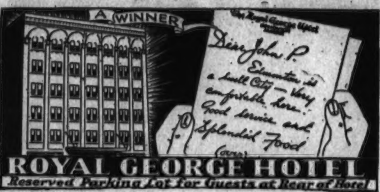 A WINNER
The Royal George Hotel
Dear John P.
Edmonton is
a swell City – Very
comfortable here.
Good service and
Splendid Food
(over)
ROYAL GEORGE HOTEL
Reserved Parking Lot for Guests at Rear of Hotel